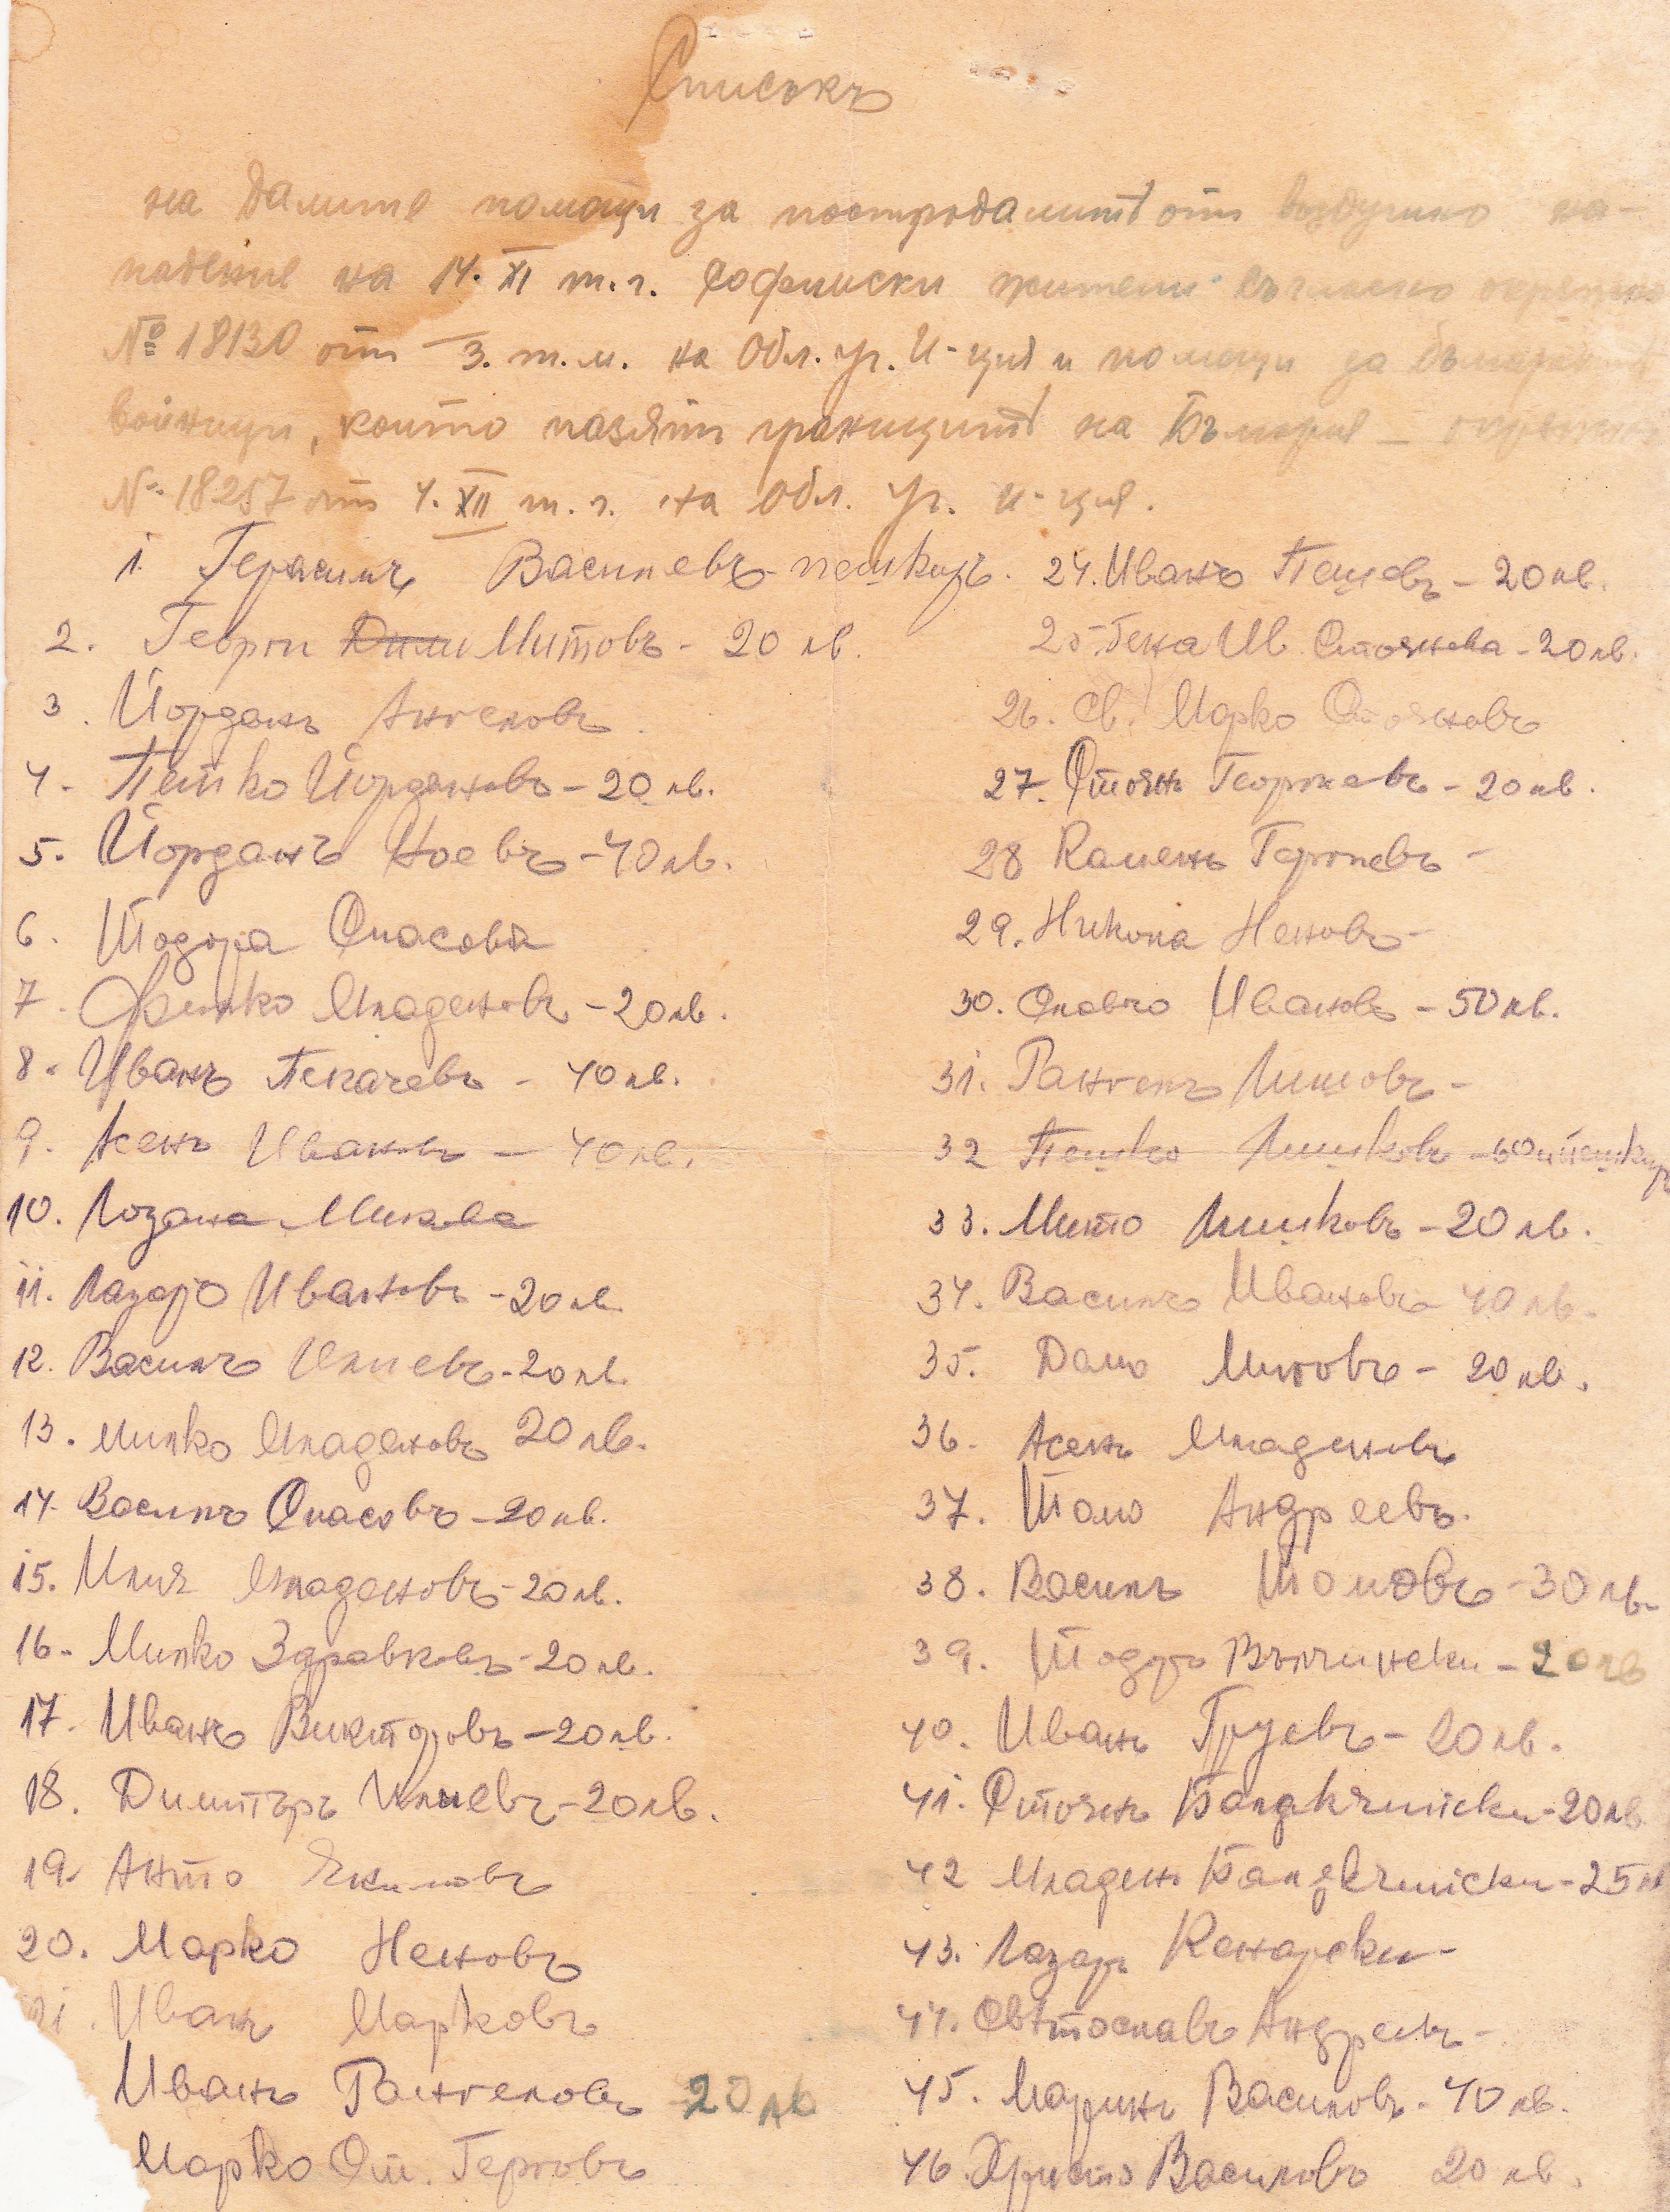 Списъкъ
на дамите помощи за пострадалитѣ от въздушно на-
падение на 14. XI т.г. Софийски жители съгласно окрѫжно
№ 18130 отъ 3. т.м. на Обл. уч. И-ция и помощи за българскитѣ
войници, които пазятъ границитѣ на България – окрѫжно
№ 18257 отъ 4. XII т.г. на Обл. уч. и-ция.
1. Герасимъ Василевъ - пешкиръ.
2. Георги Митовъ - 20 лв.
3. Йорданъ Ангеловъ.
4. Петко Йордановъ - 20 лв.
5. Йорданъ Ноевъ - 40 лв.
6. Тодора Спасова
7. Филко Младеновъ - 20 лв.
8. Иванъ Пекачевъ - 40 лв.
9. Асенъ Ивановъ - 40 лв.
10. Лозана Микова
11. Лазаръ Ивановъ - 20 лв.
12. Василъ Илиевъ - 20 лв.
13. Милко Младеновъ 20 лв.
14. Василъ Спасовъ - 20 лв.
15. Илия Младеновъ - 20 лв.
16. Милко Здравковъ - 20 лв.
17. Иванъ Викторовъ - 20 лв.
18. Димитъръ Илиевъ - 20 лв.
19. Анто Якимовъ
20. Марко Неновъ
21. Иванъ Марковъ
Иванъ Рангеловъ 20 лв
Марко Ст. Герговъ
24. Иванъ Пешовъ - 20 лв.
25. Гена Ив. Стоянова - 20 лв.
26. Св. Марко Стояновъ
27. Стоянъ Георгиевъ - 20 лв.
28 Каменъ Герговъ -
29. Никола Неновъ -
30. Славчо Ивановъ - 50 лв.
31. Рангелъ Лишовъ -
32 Пешко Лишковъ - 60 и пешкиръ
33. Мито Лишковъ - 20 лв.
34. Василъ Ивановъ 40 лв.
35. Дамо Митовъ - 20 лв.
36. Асенъ Младеновъ
37. Томо Андреевъ.
38. Василъ Томовъ - 30 лв.
39. Тодоръ Вълчински - 20 лв
40. Иванъ Груевъ - 20 лв.
41. Стоянъ Балджийски - 20 лв
42 Младенъ Балджийски - 25 лв
43. Лазаръ Кенарски -
44. Свѣтославъ Андреевъ -
45. Маринъ Василовъ - 40 лв.
46. Христо Василовъ 20 лв.